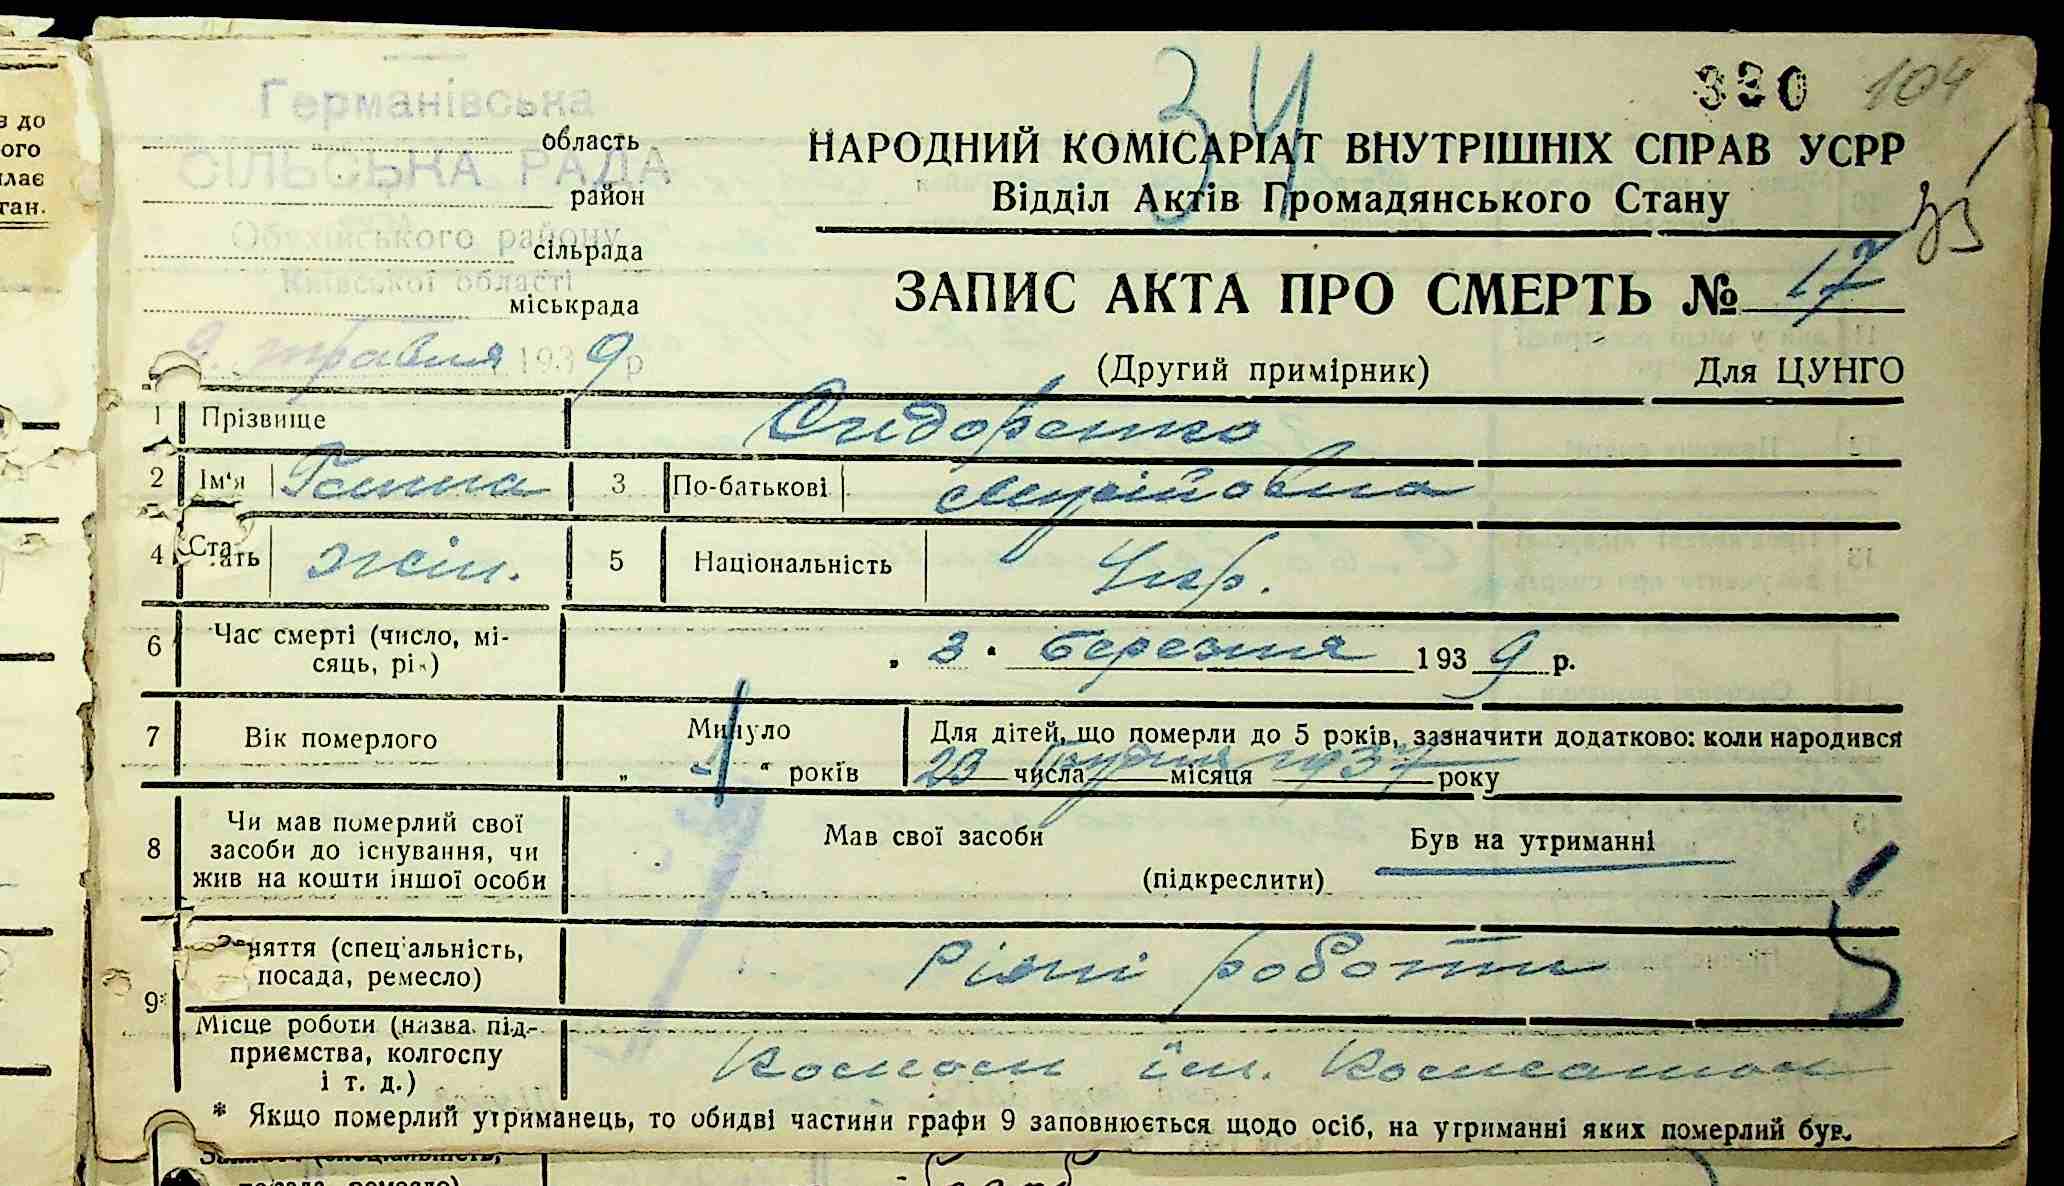 з до
ого
лає
ган.
34
330 104
Германівська
область
СІЛЬСЬКА РАДА
район
Обухівського району
сільрада
Київської області
міськрада
9. травня 1939 р
НАРОДНИЙ КОМІСАРІАТ ВНУТРІШНІХ СПРАВ УСРР
Відділ Актів Громадянського Стану
ЗАПИС АКТА ПРО СМЕРТЬ № 17
(Другий примірник) Для ЦУНГО
1 Прізвище Сидоренко
2 Ім'я Ганна 3 По-батькові
4 Стать жін. 5 Національність Укр.
6 Час смерті (число, мі-
сяць, рік) „ 3 " березня 1939 р.
7 Вік померлого Минуло „ 1 " років
Для дітей, що померли до 5 років, зазначити додатково: коли народився
29 числа грудня місяця 1937 року
8 Чи мав померлий свої
засоби до існування, чи
жив на кошти іншої особи
Мав свої засоби Був на утриманні
(підкреслити)
9* Заняття (спеціальність,
посада, ремесло) Різні роботи
Місце роботи (назва під-
приємства, колгоспу
і т. д.) Колгосп ім.
* Якщо померлий утриманець, то обидві частини графи 9 заповнюється щодо осіб, на утриманні яких померлий був.